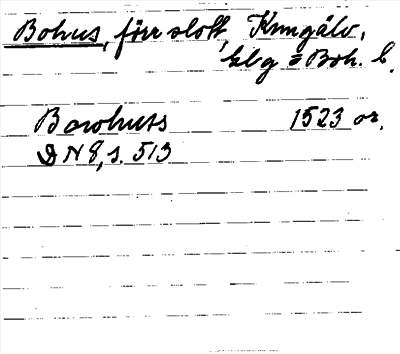 Bohus, förr slott, Kungälv,
klbg = Boh. l.
Bowhuss 1523 or.
DN 8, s. 513